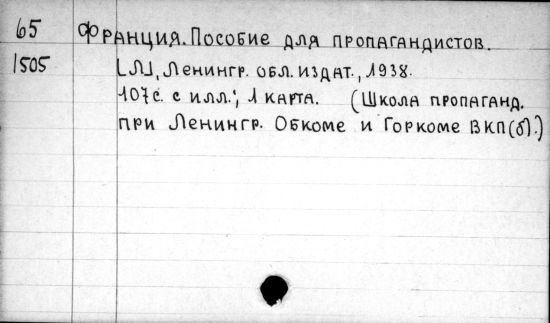 65 Франция. Пособие для пропагандистов.
1505 [Л], Ленингр. обл. издат., 1938.
107 с. с илл.; 1 карта. (Школа пропаганд.
при Ленингр. Обкоме и Горкоме ВКП(б).)